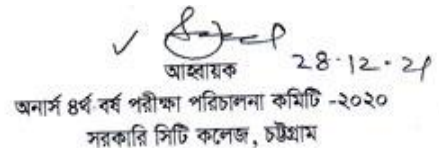 আহ্বায়ক 28.12.21
অনার্স ৪র্থ বর্ষ পরীক্ষা পরিচালনা কমিটি -২০২০
সরকারি সিটি কলেজ, চট্টগ্রাম